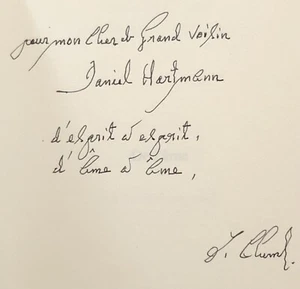 pour mon Cher et Grand Voisin
Daniel Hartmann
d'esprit à esprit,
d'âme à âme,